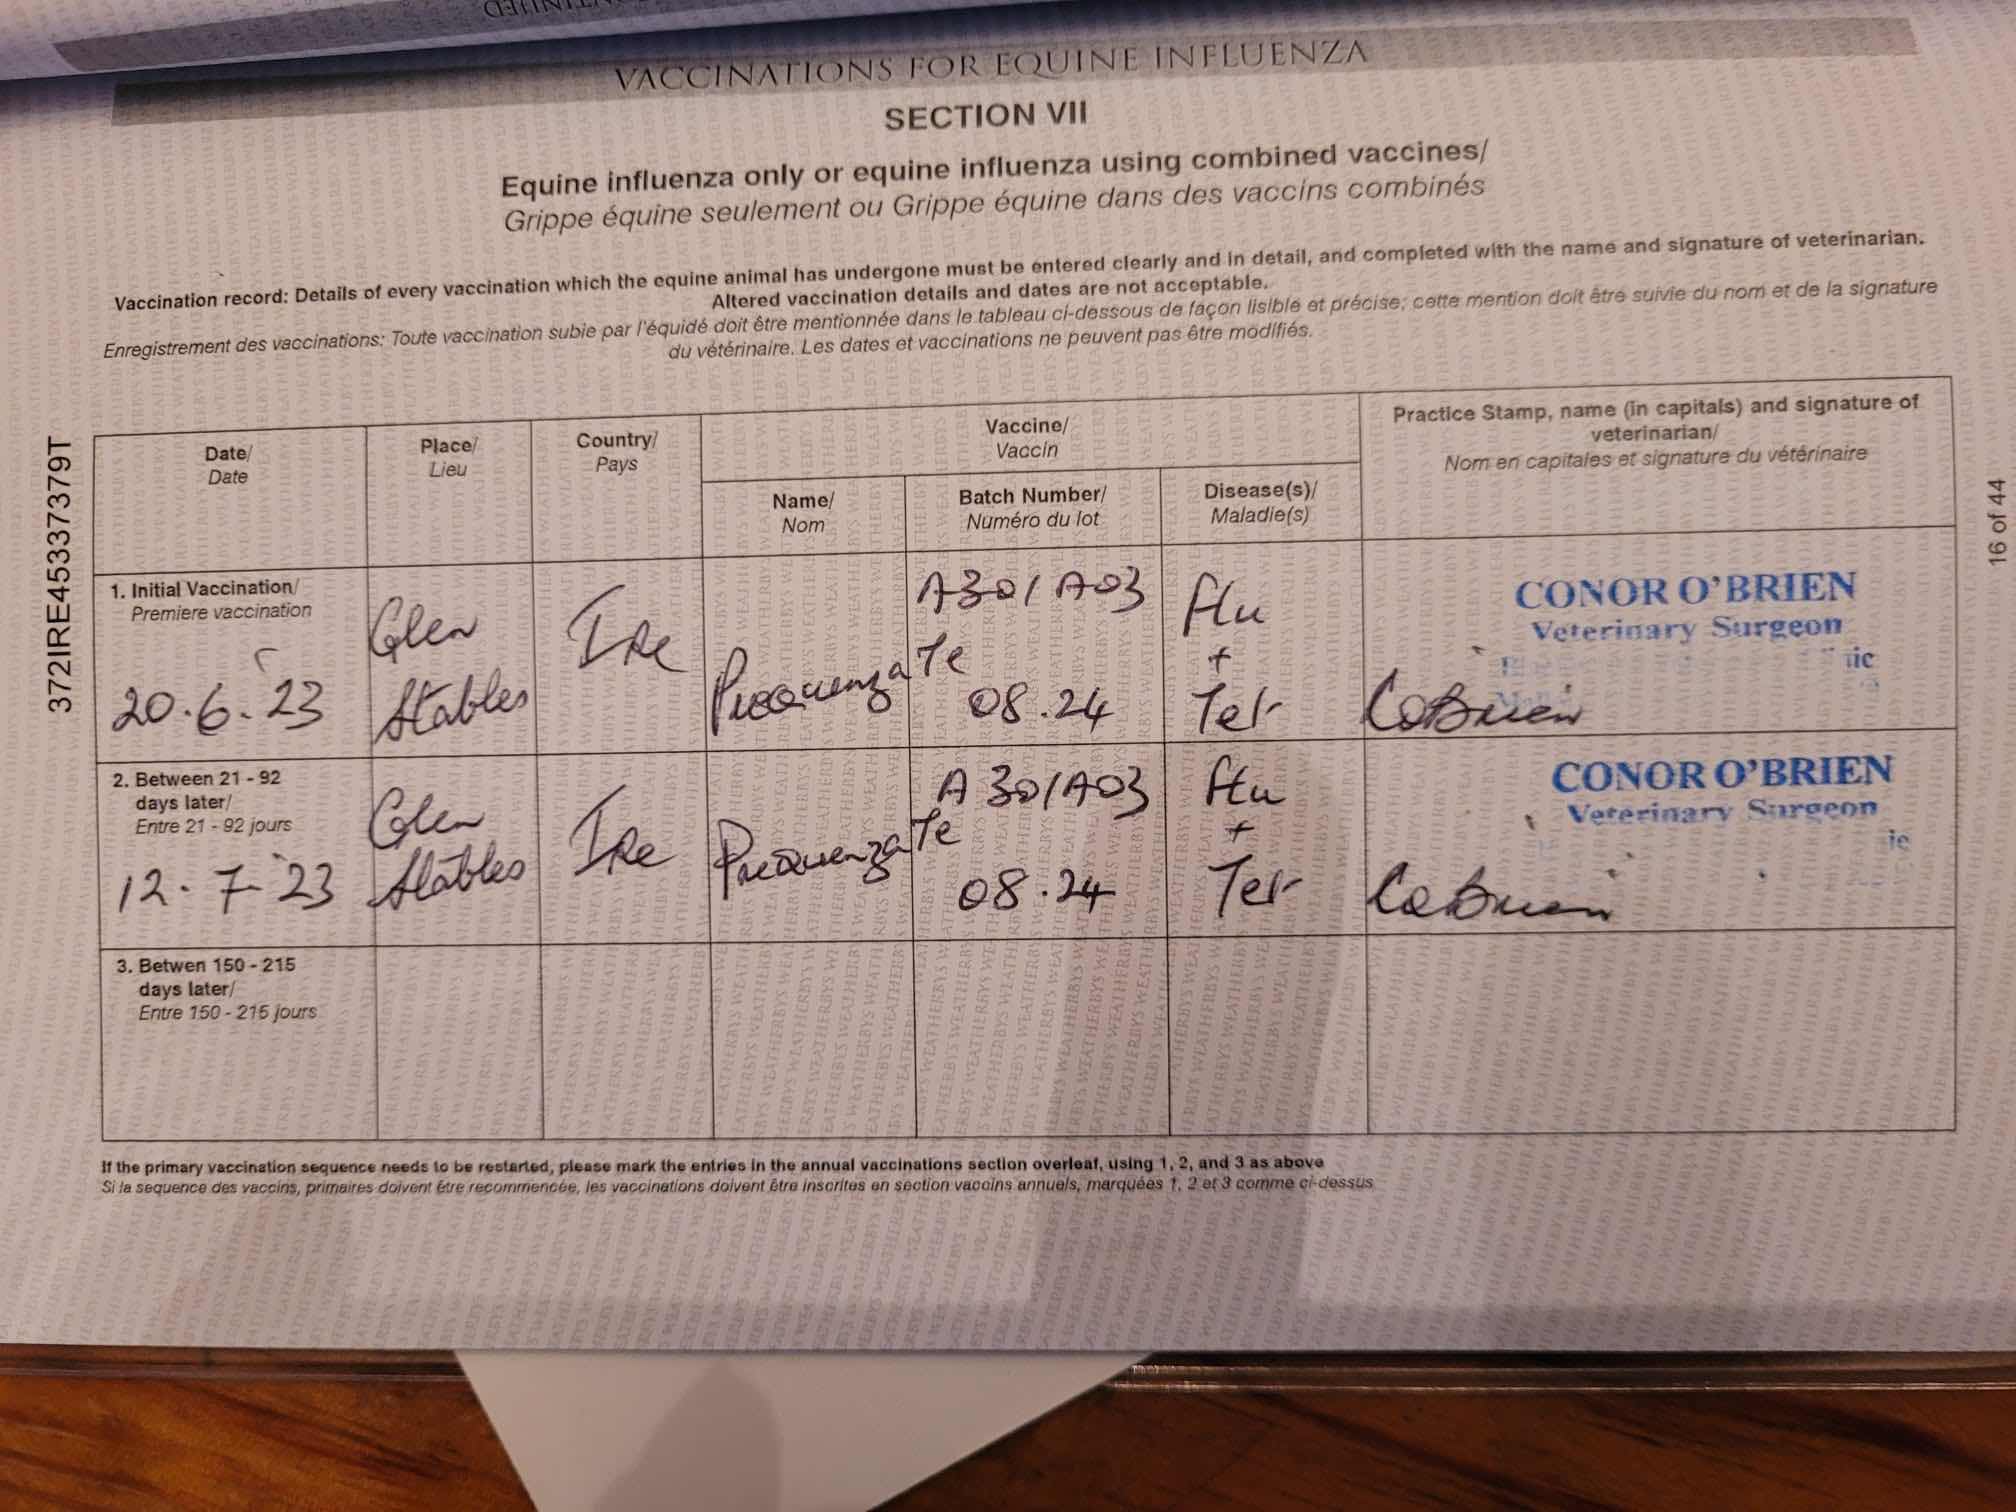 VACCINATIONS FOR EQUINE INFLUENZA
SECTION VII
Equine influenza only or equine influenza using combined vaccines/
Grippe équine seulement ou Grippe équine dans des vaccins combinés
Vaccination record: Details of every vaccination which the equine animal has undergone must be entered clearly and in detail, and completed with the name and signature of veterinarian.
Altered vaccination details and dates are not acceptable.
Enregistrement des vaccinations: Toute vaccination subie par l'équidé doit être mentionnée dans le tableau ci-dessous de façon lisible et précise; cette mention doit être suivie du nom et de la signature
du vétérinaire. Les dates et vaccinations ne peuvent pas être modifiés.
372IRE45337379T
16 of 44
Date/
Date
Place/
Lieu
Country/
Pays
Vaccine/
Vaccin
Name/
Nom
Batch Number/
Numéro du lot
Disease(s)/
Maladie(s)
Practice Stamp, name (in capitals) and signature of
veterinarian/
Nom en capitales et signature du vétérinaire
1. Initial Vaccination/
Premiere vaccination
20.6.23
Glen
Stables
Ire
Prequenza Te
A301A03
08.24
Flu
+
Tet
CONOR O'BRIEN
Veterinary Surgeon
COBrien
2. Between 21 - 92
days later/
Entre 21 - 92 jours
12.7.23
Glen
Stables
Ire
Prequenza Te
A301A03
08.24
Flu
+
Tet
CONOR O'BRIEN
Veterinary Surgeon
COBrien
3. Betwen 150 - 215
days later/
Entre 150 - 215 jours
If the primary vaccination sequence needs to be restarted, please mark the entries in the annual vaccinations section overleaf, using 1, 2, and 3 as above
Si la sequence des vaccins, primaires doivent être recommencée, les vaccinations doivent être inscrites en section vaccins annuels, marquées 1, 2 et 3 comme ci-dessus